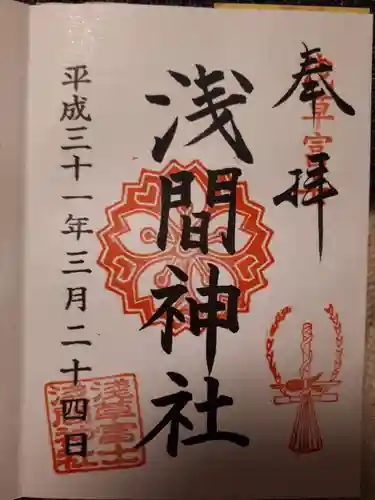 奉拝
浅草富士
浅間神社
平成三十一年三月二十四日
浅草富士
浅間神社